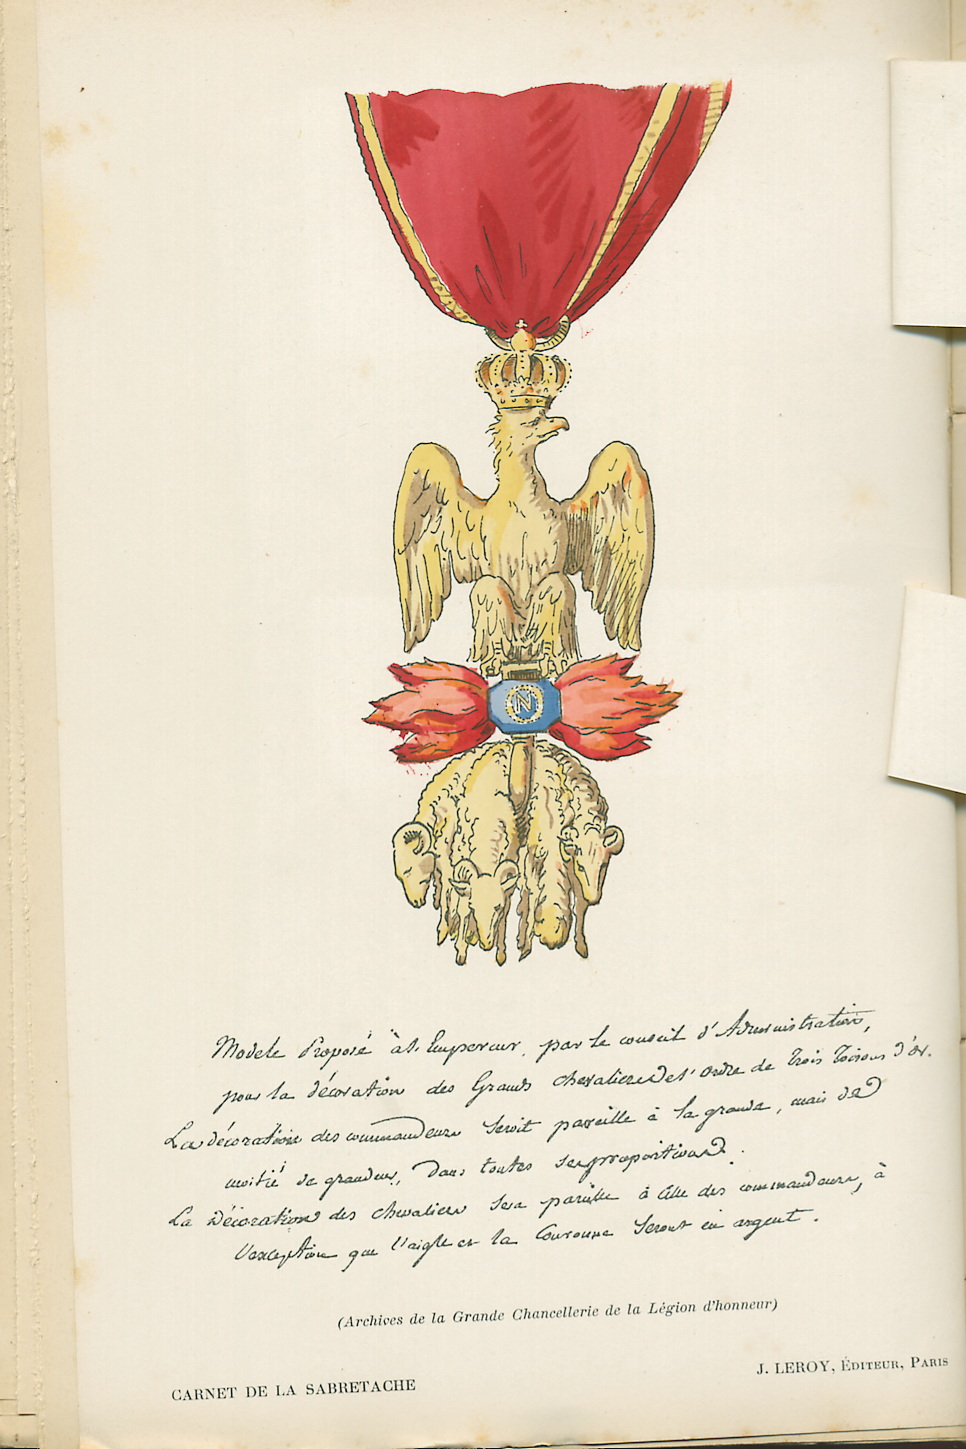 N
Modele Proposé à l'Empereur, par le conseil d'Administration,
pour la décoration des Grands chevaliers de l'Ordre de Trois Toisons d'or.
La décoration des commandeurs seroit pareille à la grande, mais de
moitié de grandeur, dans toutes ses proportions.
La Décoration des chevaliers sera pareille à celle des commandeurs, à
l'exception que l'aigle et la Couronne seront en argent.
(Archives de la Grande Chancellerie de la Légion d'honneur)
CARNET DE LA SABRETACHE
J. LEROY, ÉDITEUR, PARIS